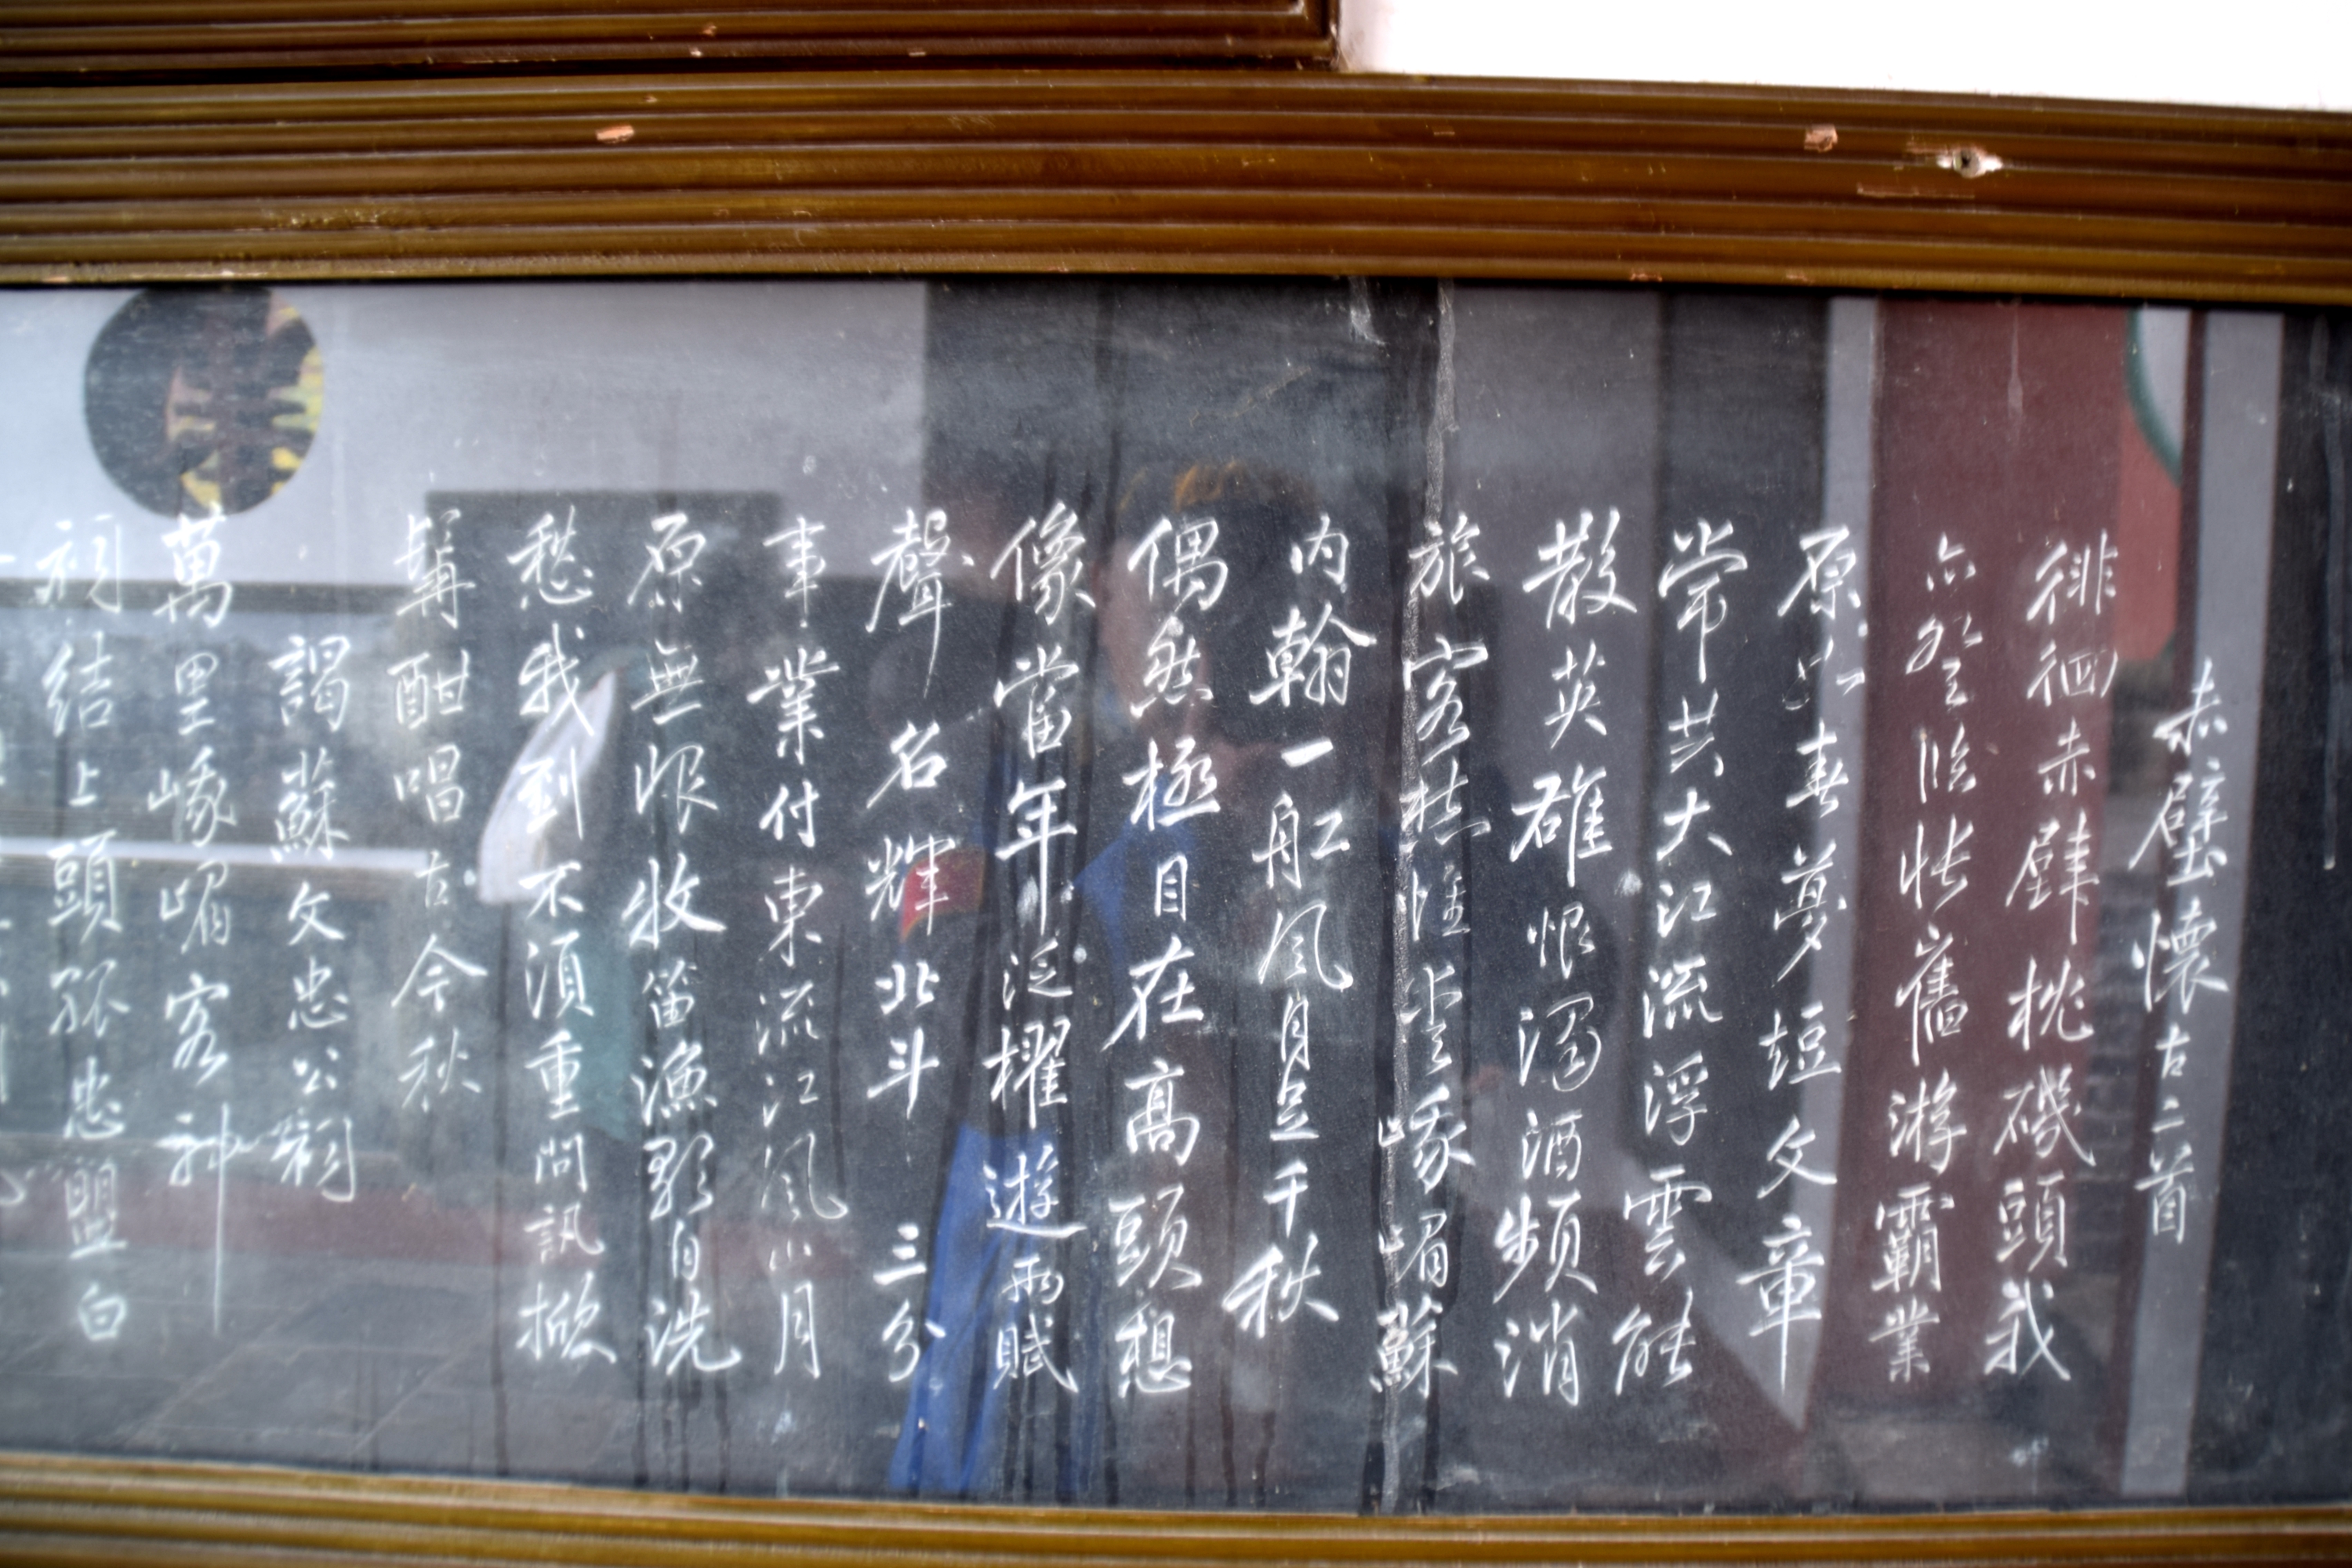 赤壁懷古二首
徘徊赤壁枕磯頭我
亦登臨悵舊游霸業
原如春夢短文章
常共大江流浮雲能
散英雄恨濁酒頻消
旅客愁惟峨嵋蘇
內翰一船風月足千秋
偶然極目在高頭想
像當年泛櫂遊兩賦
聲名輝北斗三分
事業付東流江風山月
原無恨牧笛漁歌自洗
愁我到不須重問訊掀
髯酣唱古今秋
謁蘇文忠公祠
萬里峨嵋客神
祠結上頭孤忠盟白